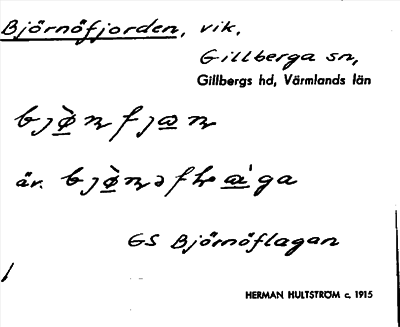 Björnöfjorden, vik,
Gillberga sn,
Gillbergs hd, Värmlands län
är.
GS Björnöflagan
HERMAN HULTSTRÖM c. 1915